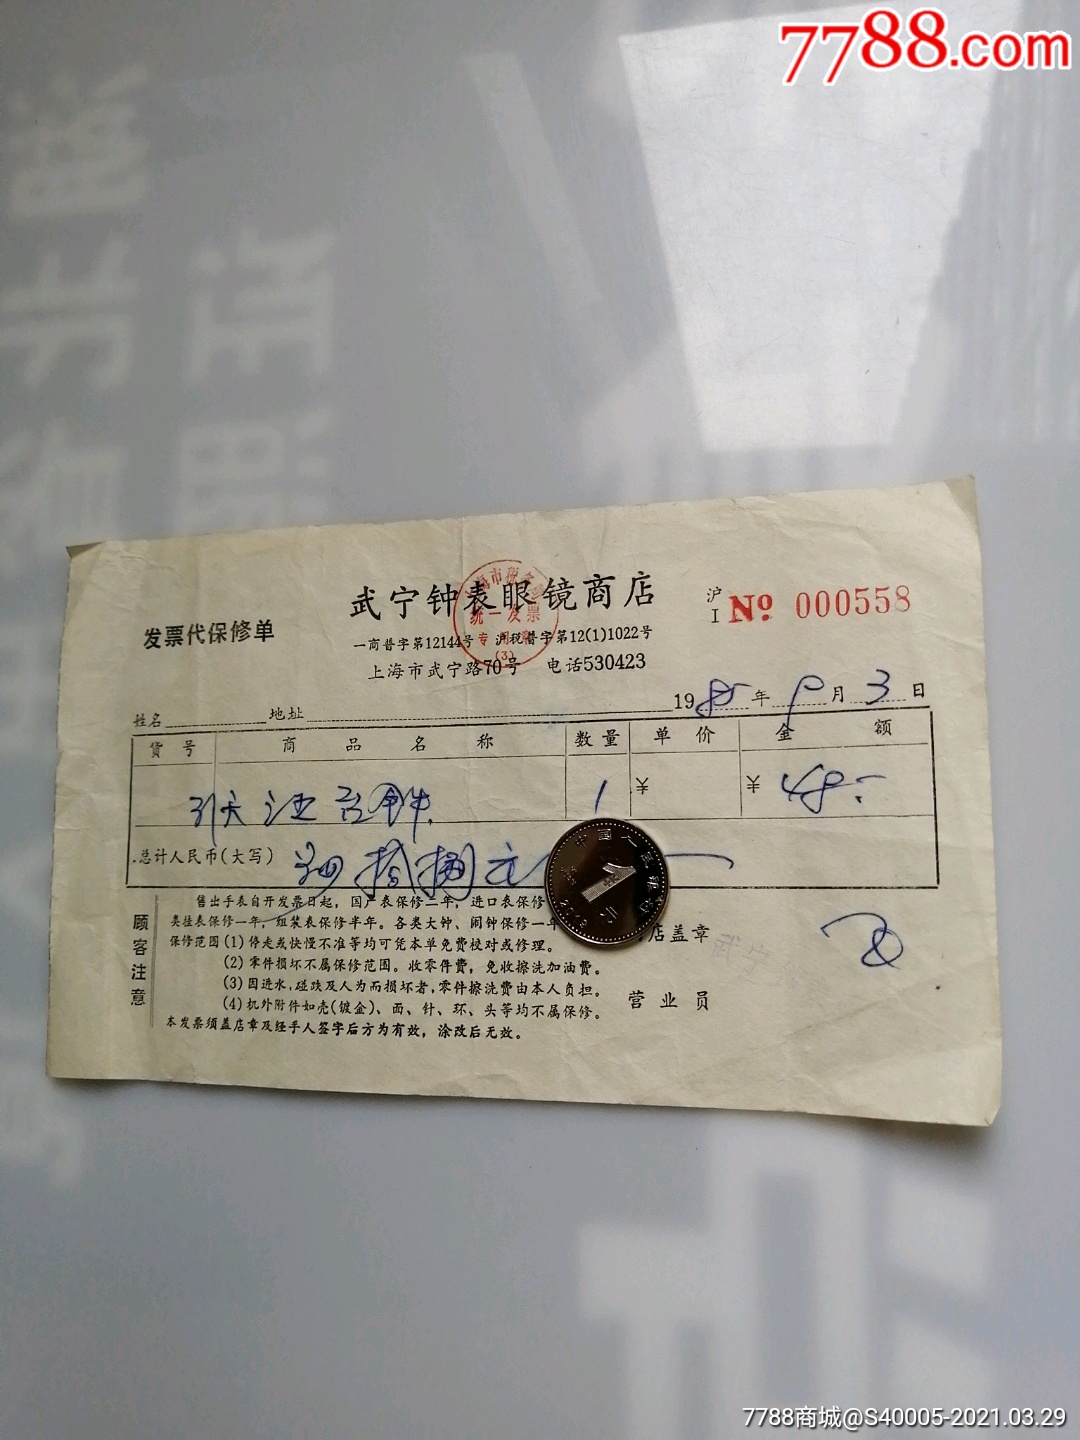 7788.com
武宁钟表眼镜商店
沪
I
№ 000558
统一发票
专用章
(3)
发票代保修单
一商普字第12144号 沪税普字第12(1)1022号
上海市武宁路70号 电话530423
姓名 地址 1985年9月3日
货号 商品名称 数量 单价 金额
台钟 1 ¥ ¥ 48
总计人民币(大写) 肆拾捌元
顾客注意
售出手表自开发票日起，国产表保修二年，进口表保修
类挂表保修一年，组装表保修半年。各类大钟、闹钟保修一年
保修范围(1)停走或快慢不准等均可凭本单免费校对或修理。
(2)零件损坏不属保修范围。收零件费，免收擦洗加油费。
(3)因进水，碰跌及人为而损坏者，零件擦洗费由本人负担。
(4)机外附件如壳(镀金)、面、针、环、头等均不属保修。
本发票须盖店章及经手人签字后方为有效，涂改后无效。
店盖章
营业员
中国人民银行
1
2012
7788商城@S40005-2021.03.29